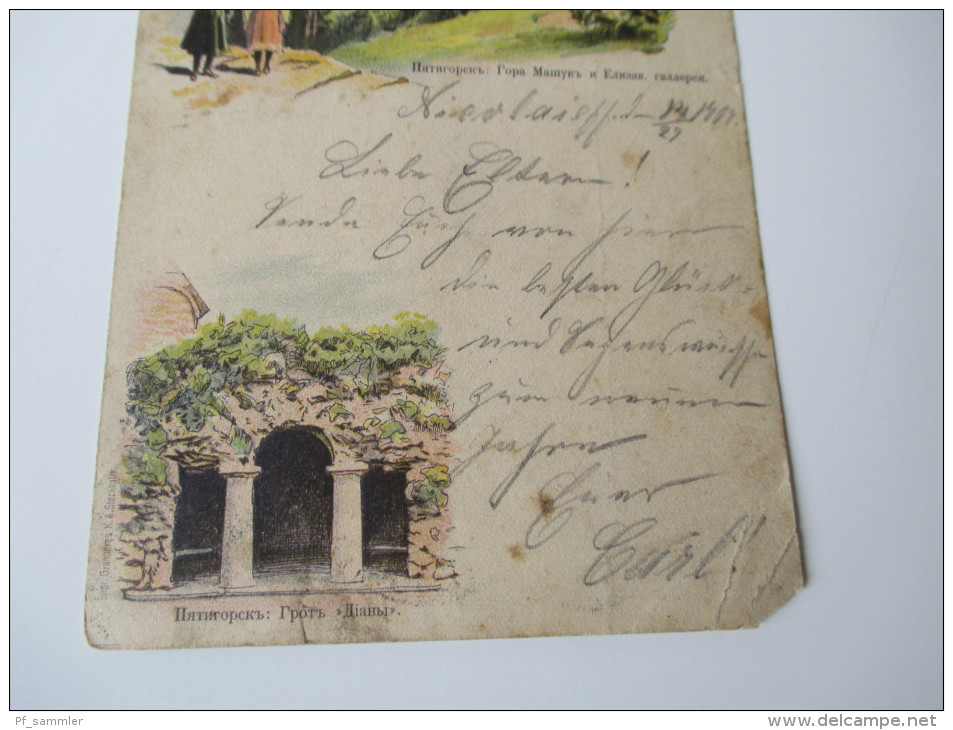 Пятигорскъ: Гора Машукъ и Елизав. галлерея.
Nicolaieff. den
Liebe Eltern!
Sende Euch von hier
die besten Glück-
und Segenswünsche
zum neuen
Jahre
Euer
Carl!
Пятигорскъ: Гротъ »Діаны«.
Granbergs K. A. Stockholm
Pf_sammler
www.delcampe.net